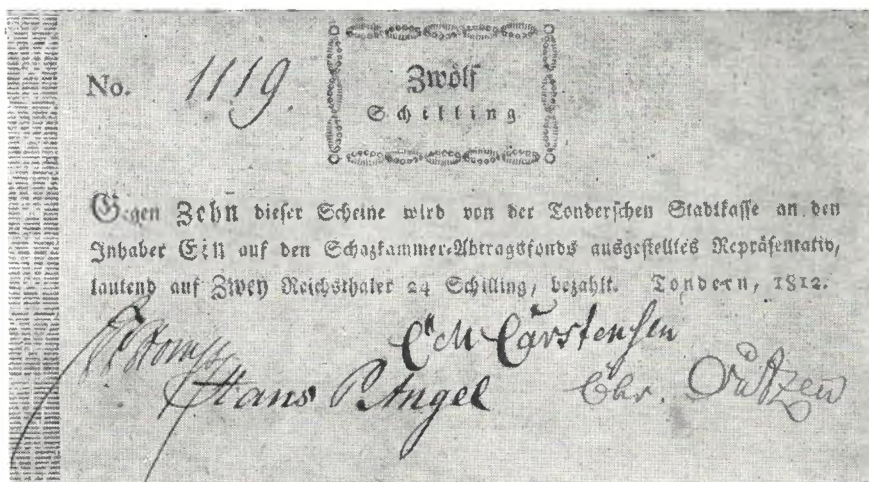 No. 1119.
Zwölf
Schilling
Gegen Zehn dieser Scheine wird von der Tonderschen Stadtkasse an den
Inhaber Ein auf den Schazkammer-Abtragsfonds ausgestelltes Repräsentativ,
lautend auf Zwey Reichsthaler 24 Schilling, bezahlt. Tondern, 1812.
Carstensen
Hans P. Angel Chr.